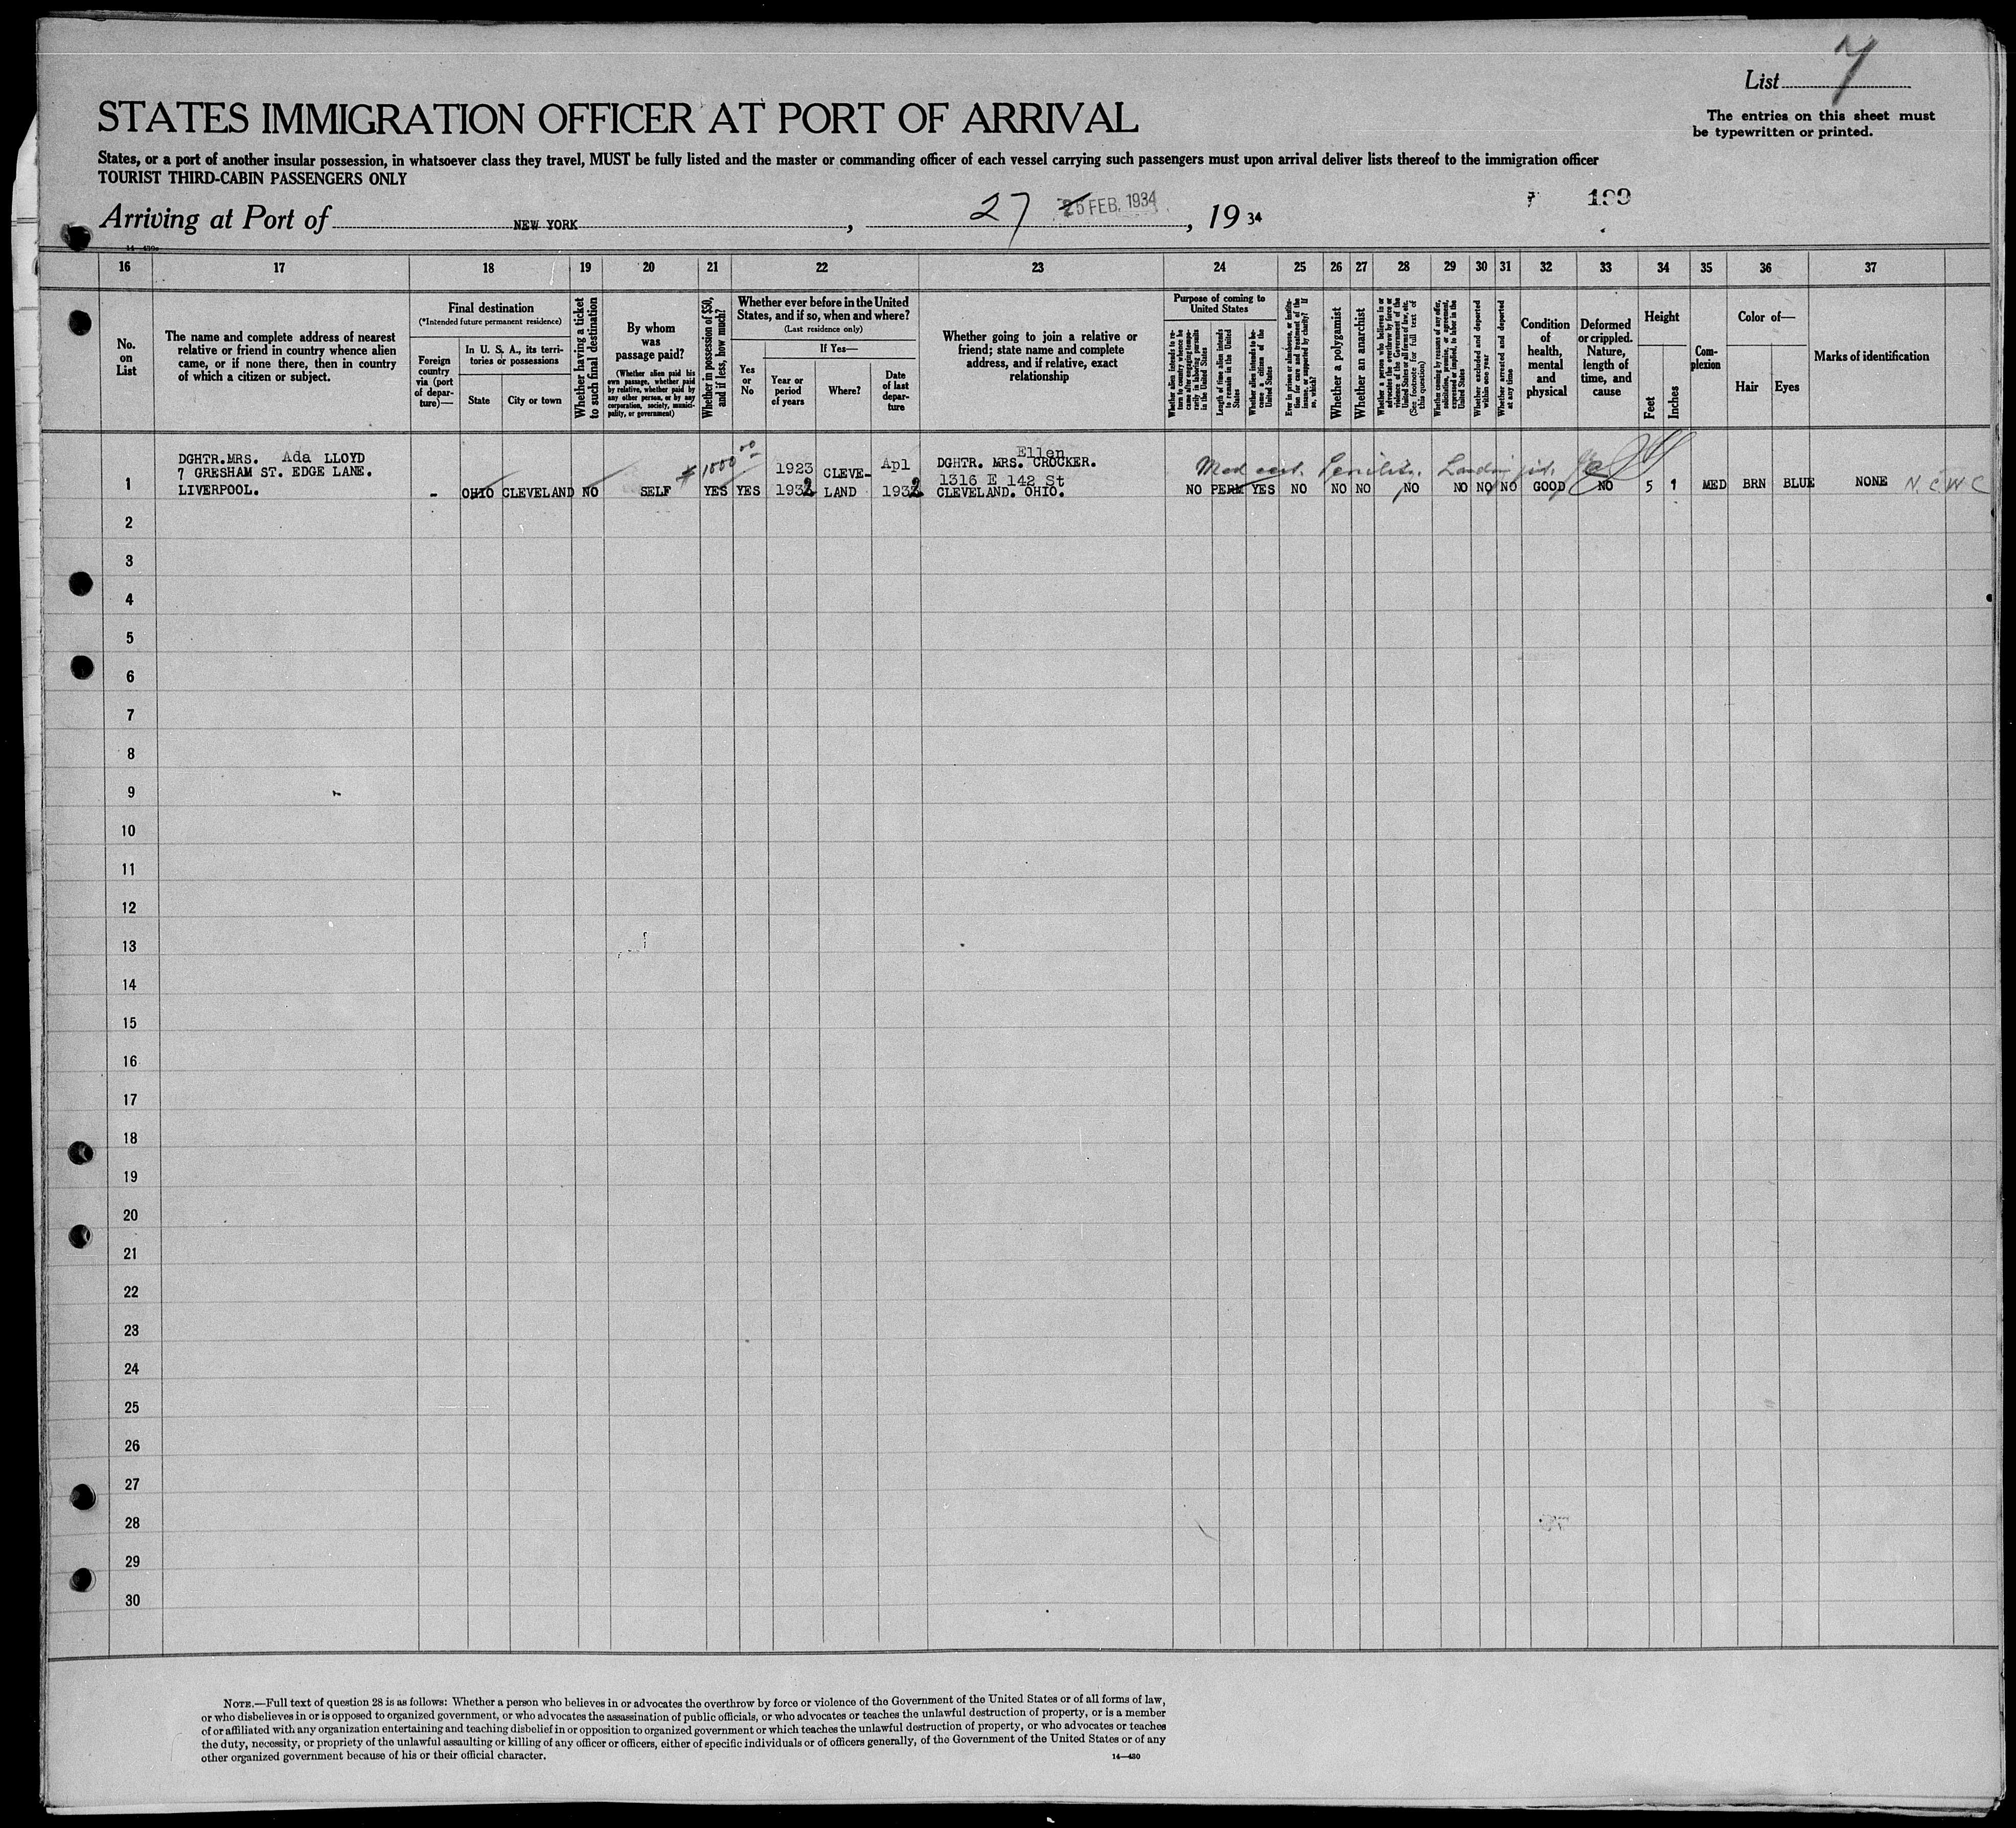 List 7
STATES IMMIGRATION OFFICER AT PORT OF ARRIVAL
The entries on this sheet must
be typewritten or printed.
States, or a port of another insular possession, in whatsoever class they travel, MUST be fully listed and the master or commanding officer of each vessel carrying such passengers must upon arrival deliver lists thereof to the immigration officer
TOURIST THIRD-CABIN PASSENGERS ONLY
Arriving at Port of NEW YORK, 27 25 FEB. 1934, 19 34
14—430
16 17 18 19 20 21 22 23 24 25 26 27 28 29 30 31 32 33 34 35 36 37
No.
on
List
The name and complete address of nearest
relative or friend in country whence alien
came, or if none there, then in country
of which a citizen or subject.
Final destination
(*Intended future permanent residence)
Foreign
country
via (port
of depar-
ture)—
In U. S. A., its terri-
tories or possessions
State
City or town
Whether having a ticket
to such final destination
By whom
was
passage paid?
(Whether alien paid his
own passage, whether paid
by relative, whether paid by
any other person, or by any
corporation, society, munici-
pality, or government)
Whether in possession of $50,
and if less, how much?
Whether ever before in the United
States, and if so, when and where?
(Last residence only)
Yes
or
No
If Yes—
Year or
period
of years
Where?
Date
of last
depar-
ture
Whether going to join a relative or
friend; state name and complete
address, and if relative, exact
relationship
Purpose of coming to
United States
Whether alien intends to re-
turn to country whence he
came after engaging tempo-
rarily in laboring pursuits
in the United States
Length of time alien intends
to remain in the United
States
Whether alien intends to be-
come a citizen of the
United States
Ever in prison or almshouse, or institu-
tion for care and treatment of the
insane, or supported by charity? If
so, which?
Whether a polygamist
Whether an anarchist
Whether a person who believes in or
advocates the overthrow by force or
violence of the Government of the
United States or all forms of law, etc.
(See footnote for full text of
this question)
Whether coming by reasons of any offer,
solicitation, promise, or agreement,
expressed or implied, to labor in the
United States
Whether excluded and deported
within one year
Whether arrested and deported
at any time
Condition
of
health,
mental
and
physical
Deformed
or crippled.
Nature,
length of
time, and
cause
Height
Feet
Inches
Com-
plexion
Color of—
Hair
Eyes
Marks of identification
DGHTR.MRS. Ada LLOYD
7 GRESHAM ST. EDGE LANE.
LIVERPOOL.
1
- OHIO CLEVELAND NO SELF
$1000 00
YES YES
1923
1932
CLEVE-
LAND
Apl
1932
Ellen
DGHTR. MRS. CROCKER.
1316 E 142 St
CLEVELAND. OHIO.
Med cert. Senility.
NO PERM YES NO NO NO NO NO NO NO GOOD NO 5 1 MED BRN BLUE NONE N.C.W.C
2
3
4
5
6
7
8
9
10
11
12
13
14
15
16
17
18
19
20
21
22
23
24
25
26
27
28
29
30
NOTE.—Full text of question 28 is as follows: Whether a person who believes in or advocates the overthrow by force or violence of the Government of the United States or of all forms of law,
or who disbelieves in or is opposed to organized government, or who advocates the assassination of public officials, or who advocates or teaches the unlawful destruction of property, or is a member
of or affiliated with any organization entertaining and teaching disbelief in or opposition to organized government or which teaches the unlawful destruction of property, or who advocates or teaches
the duty, necessity, or propriety of the unlawful assaulting or killing of any officer or officers, either of specific individuals or of officers generally, of the Government of the United States or of any
other organized government because of his or their official character.
14—430